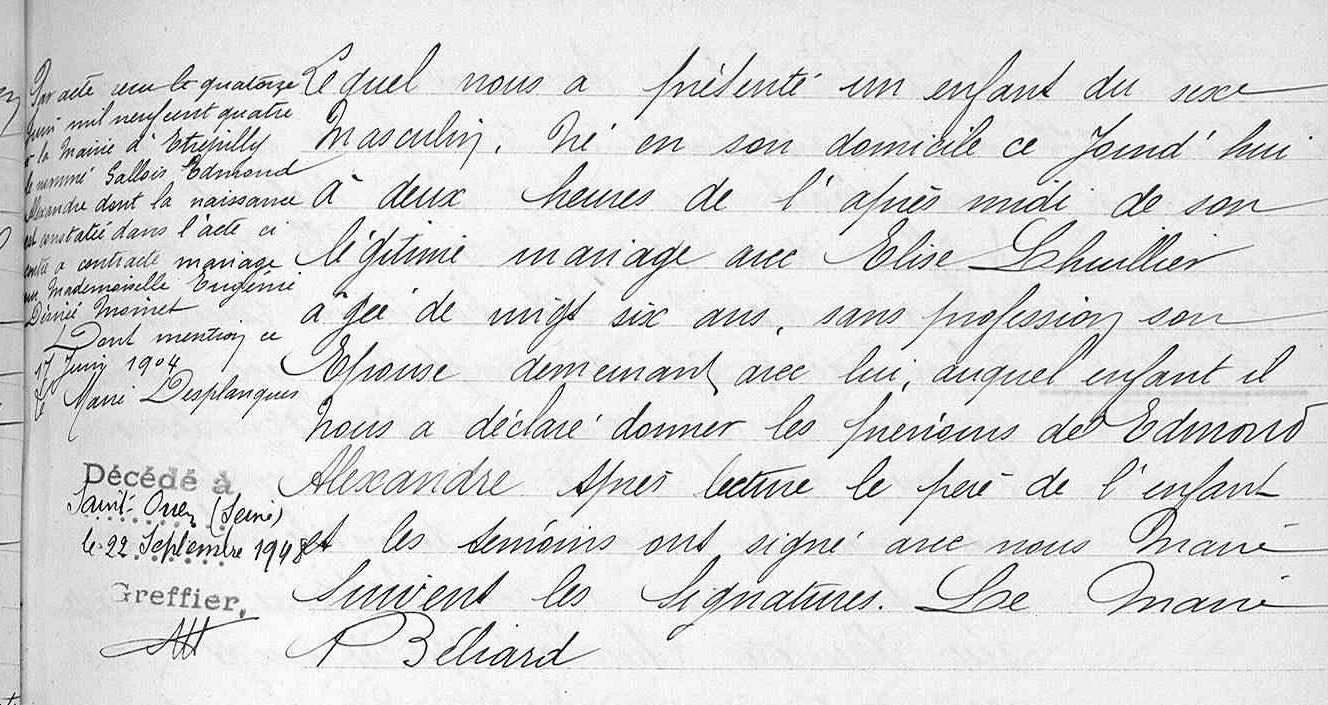 Par acte reçu le quatorze
Juin mil neuf cent quatre
la Mairie d'Etrépilly
le nommé Gallois Edmond
Alexandre dont la naissance
est constatée dans l'acte ci
contre a contracté mariage
avec Mademoiselle Eugénie
Désirée Moinet
Dont mention ce
17 Juin 1904
Le Maire Desplanques
Décédé à
Saint-Ouen (Seine)
le 22 Septembre 1948
Greffier,
Lequel nous a présenté un enfant du sexe
Masculin, Né en son domicile ce Jourd'hui
à deux heures de l'après midi de son
légitime mariage avec Elise Lhuillier
âgée de vingt six ans, sans profession son
Epouse demeurant avec lui, auquel enfant il
Nous a déclaré donner les prénoms de Edmond
Alexandre Après lecture le père de l'enfant
et les témoins ont signé avec nous Maire
Suivent les Signatures. Le Maire
A Béliard